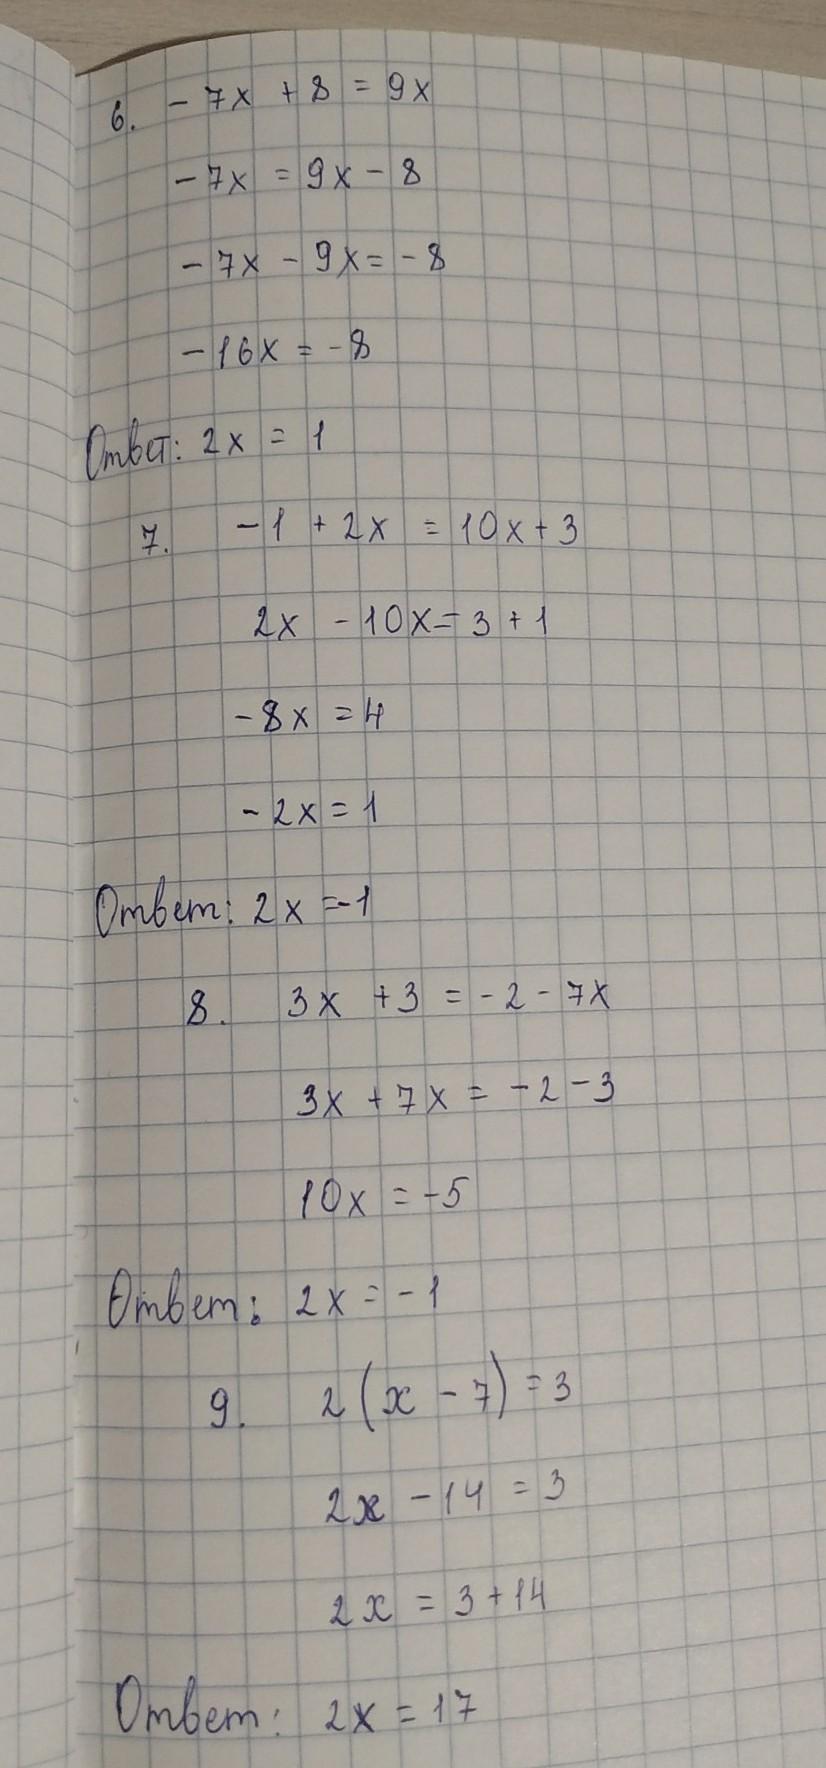 6. - 7x + 8 = 9x
- 7x = 9x - 8
- 7x - 9x = - 8
- 16x = - 8
Ответ: 2x = 1
7. - 1 + 2x = 10x + 3
2x - 10x = 3 + 1
- 8x = 4
- 2x = 1
Ответ: 2x = -1
8. 3x + 3 = - 2 - 7x
3x + 7x = - 2 - 3
10x = - 5
Ответ: 2x = - 1
9. 2(x - 7) = 3
2x - 14 = 3
2x = 3 + 14
Ответ: 2x = 17